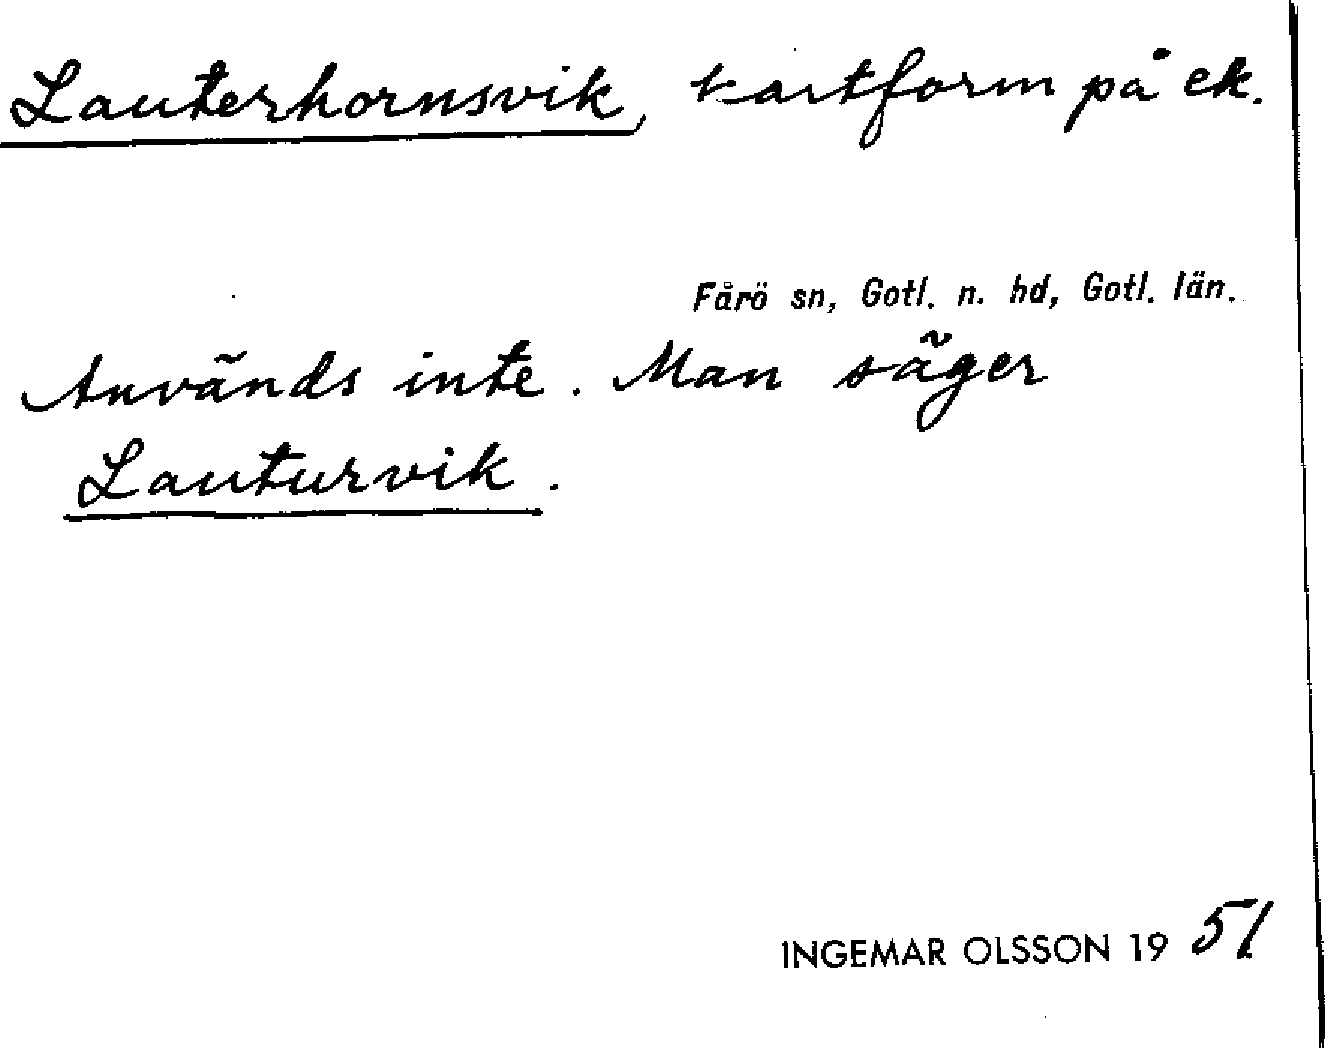 Lauterhornsvik, kartform på ek.
Fårö sn, Gotl. n. hd, Gotl. län.
Används inte. Man säger
Lauturvik.
INGEMAR OLSSON 1951